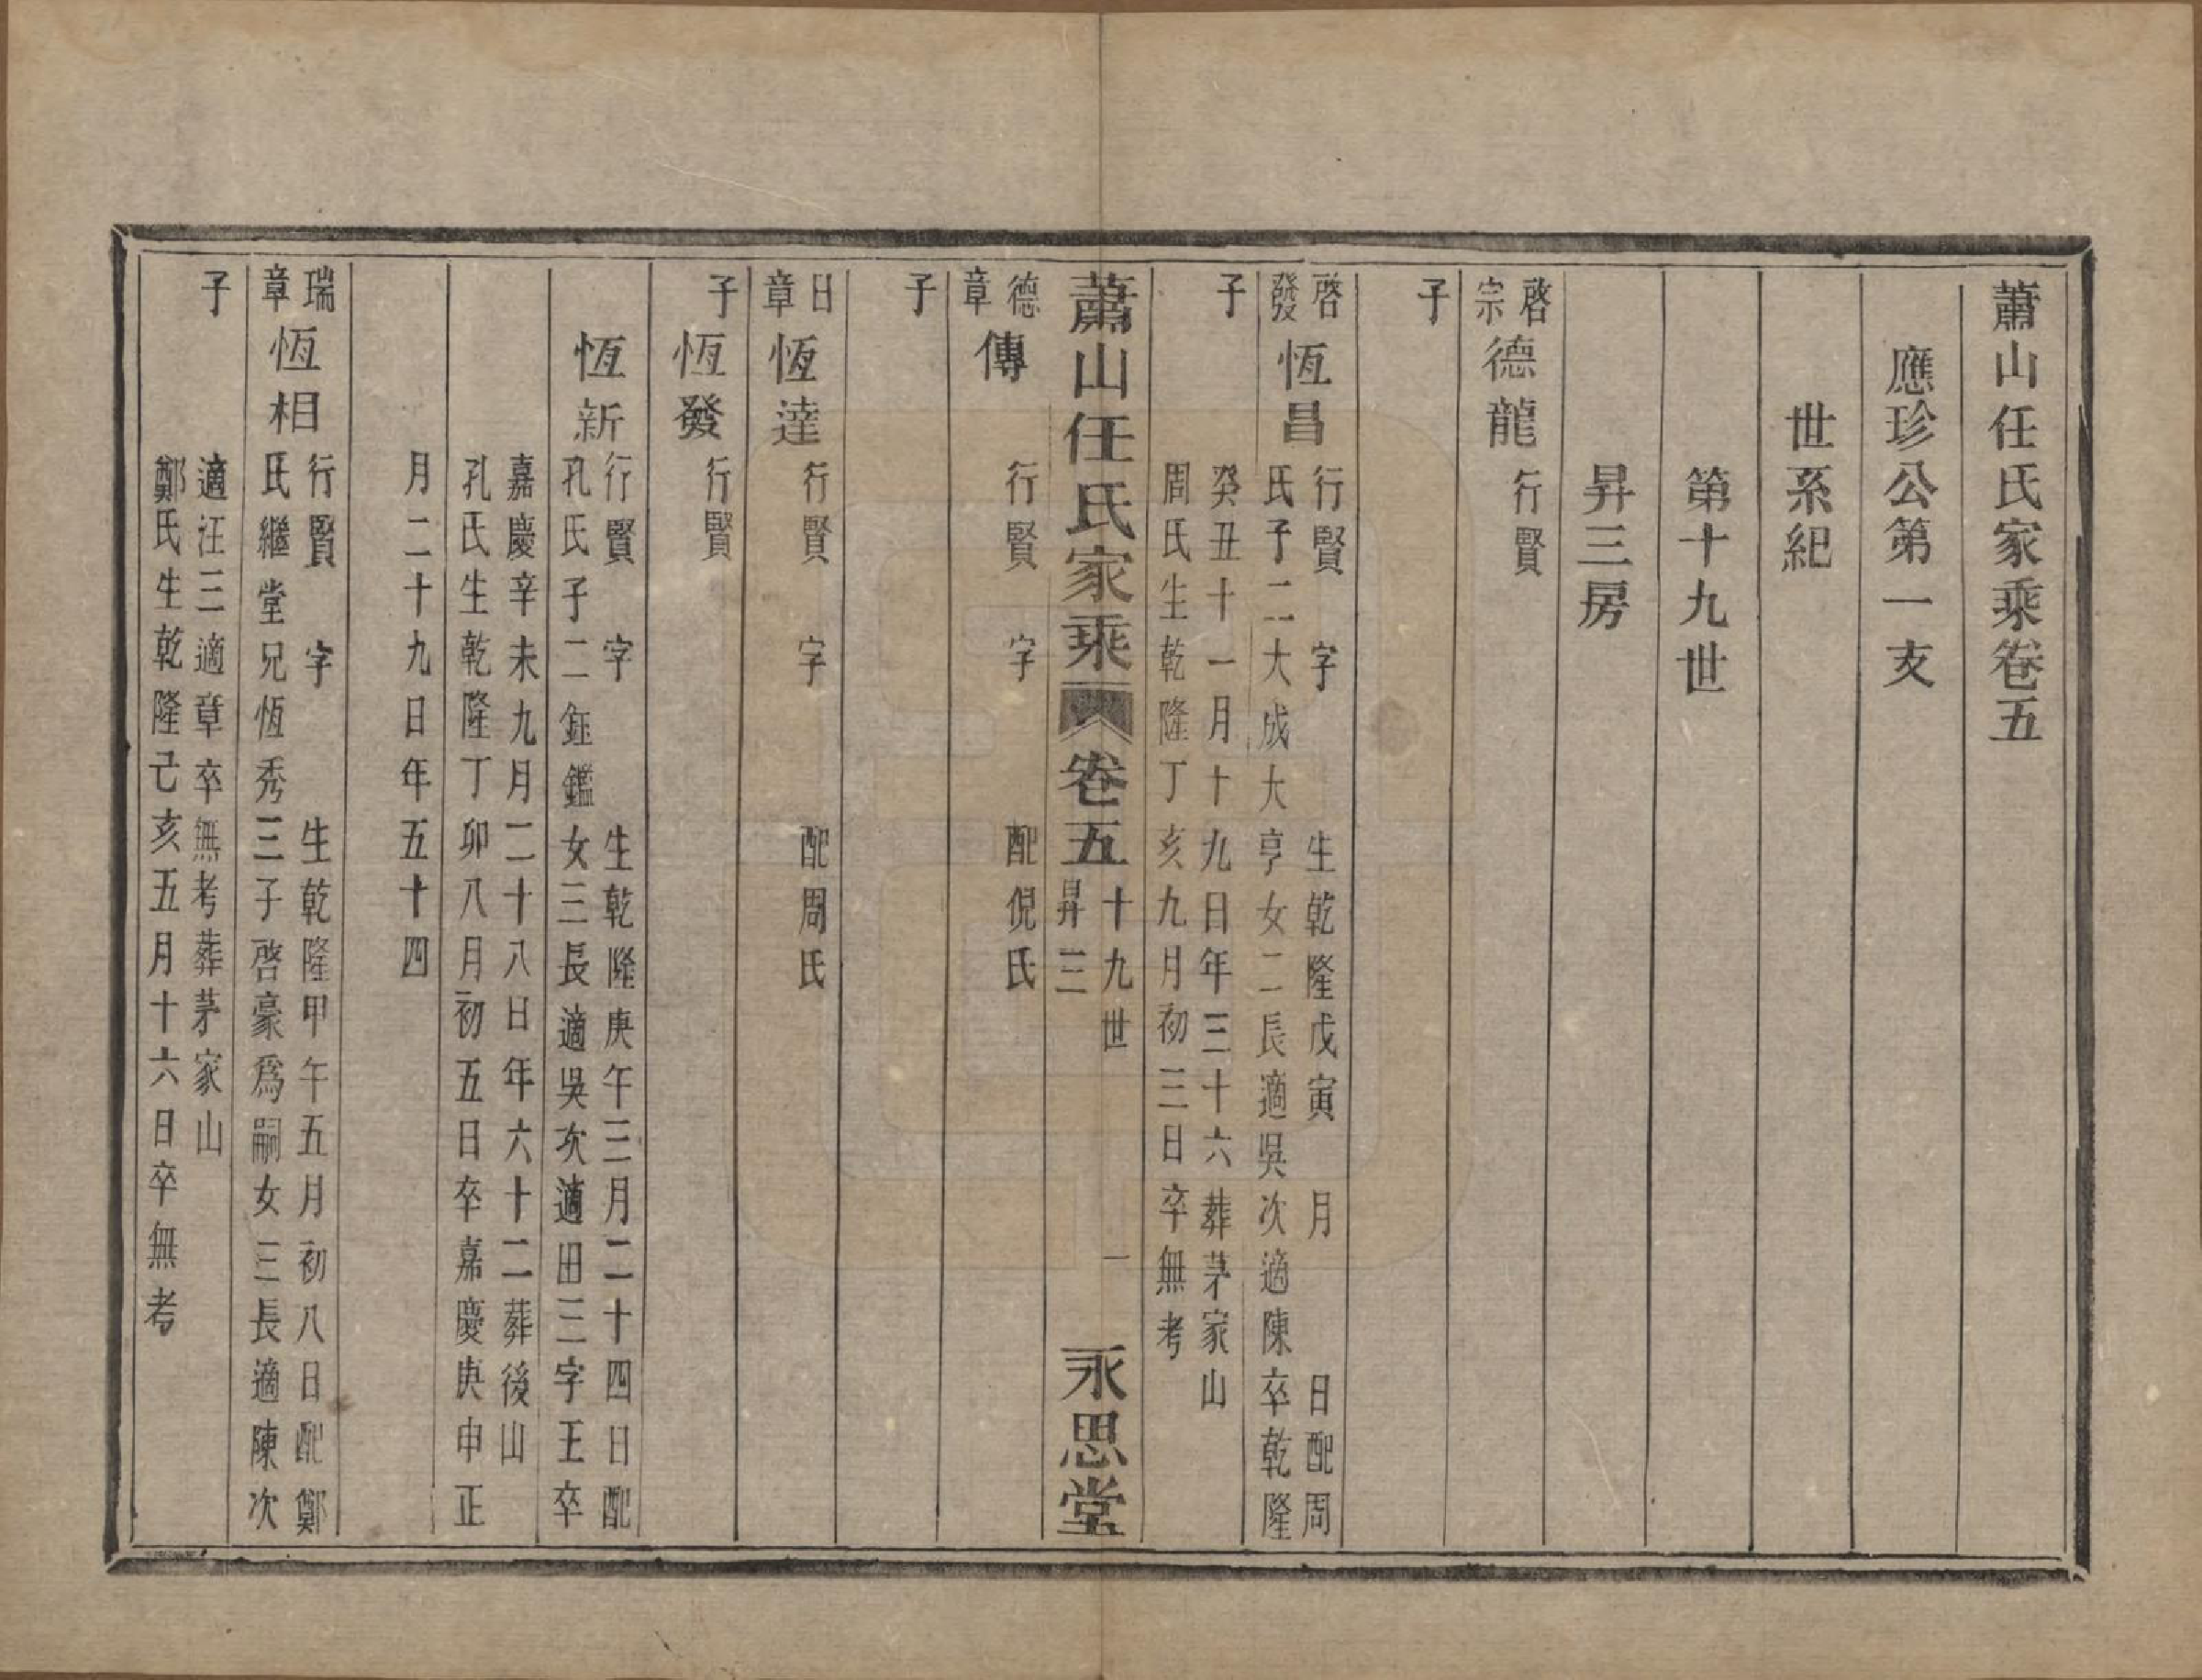 蕭山任氏家乘卷五
應珍公第一支
世系紀
第十九世
昇三房
啓宗子
德龍
行賢
啓發子
恆昌
行賢 字 生乾隆戊寅 月 日配周
氏子二大成大亨女二長適吳次適陳卒乾隆
癸丑十一月十九日年三十六葬茅家山
周氏生乾隆丁亥九月初三日卒無考
蕭山任氏家乘 卷五 十九世 昇三 一 永思堂
德章子
傳
行賢 字 配倪氏
日章子
恆達
行賢 字 配周氏
恆發
行賢
恆新
行賢 字 生乾隆庚午三月二十四日配
孔氏子二鉦鑑女三長適吳次適田三字王卒
嘉慶辛未九月二十八日年六十二葬後山
孔氏生乾隆丁卯八月初五日卒嘉慶庚申正
月二十九日年五十四
瑞章子
恆相
行賢 字 生乾隆甲午五月初八日配鄭
氏繼堂兄恆秀三子啓豪爲嗣女三長適陳次
適汪三適章卒無考葬茅家山
鄭氏生乾隆己亥五月十六日卒無考